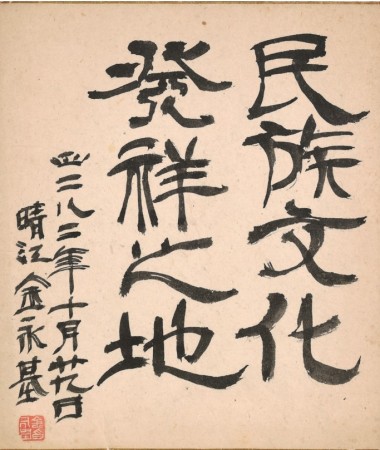 民族文化
發祥之地
四二八二年十月廿九日
晴江金永基